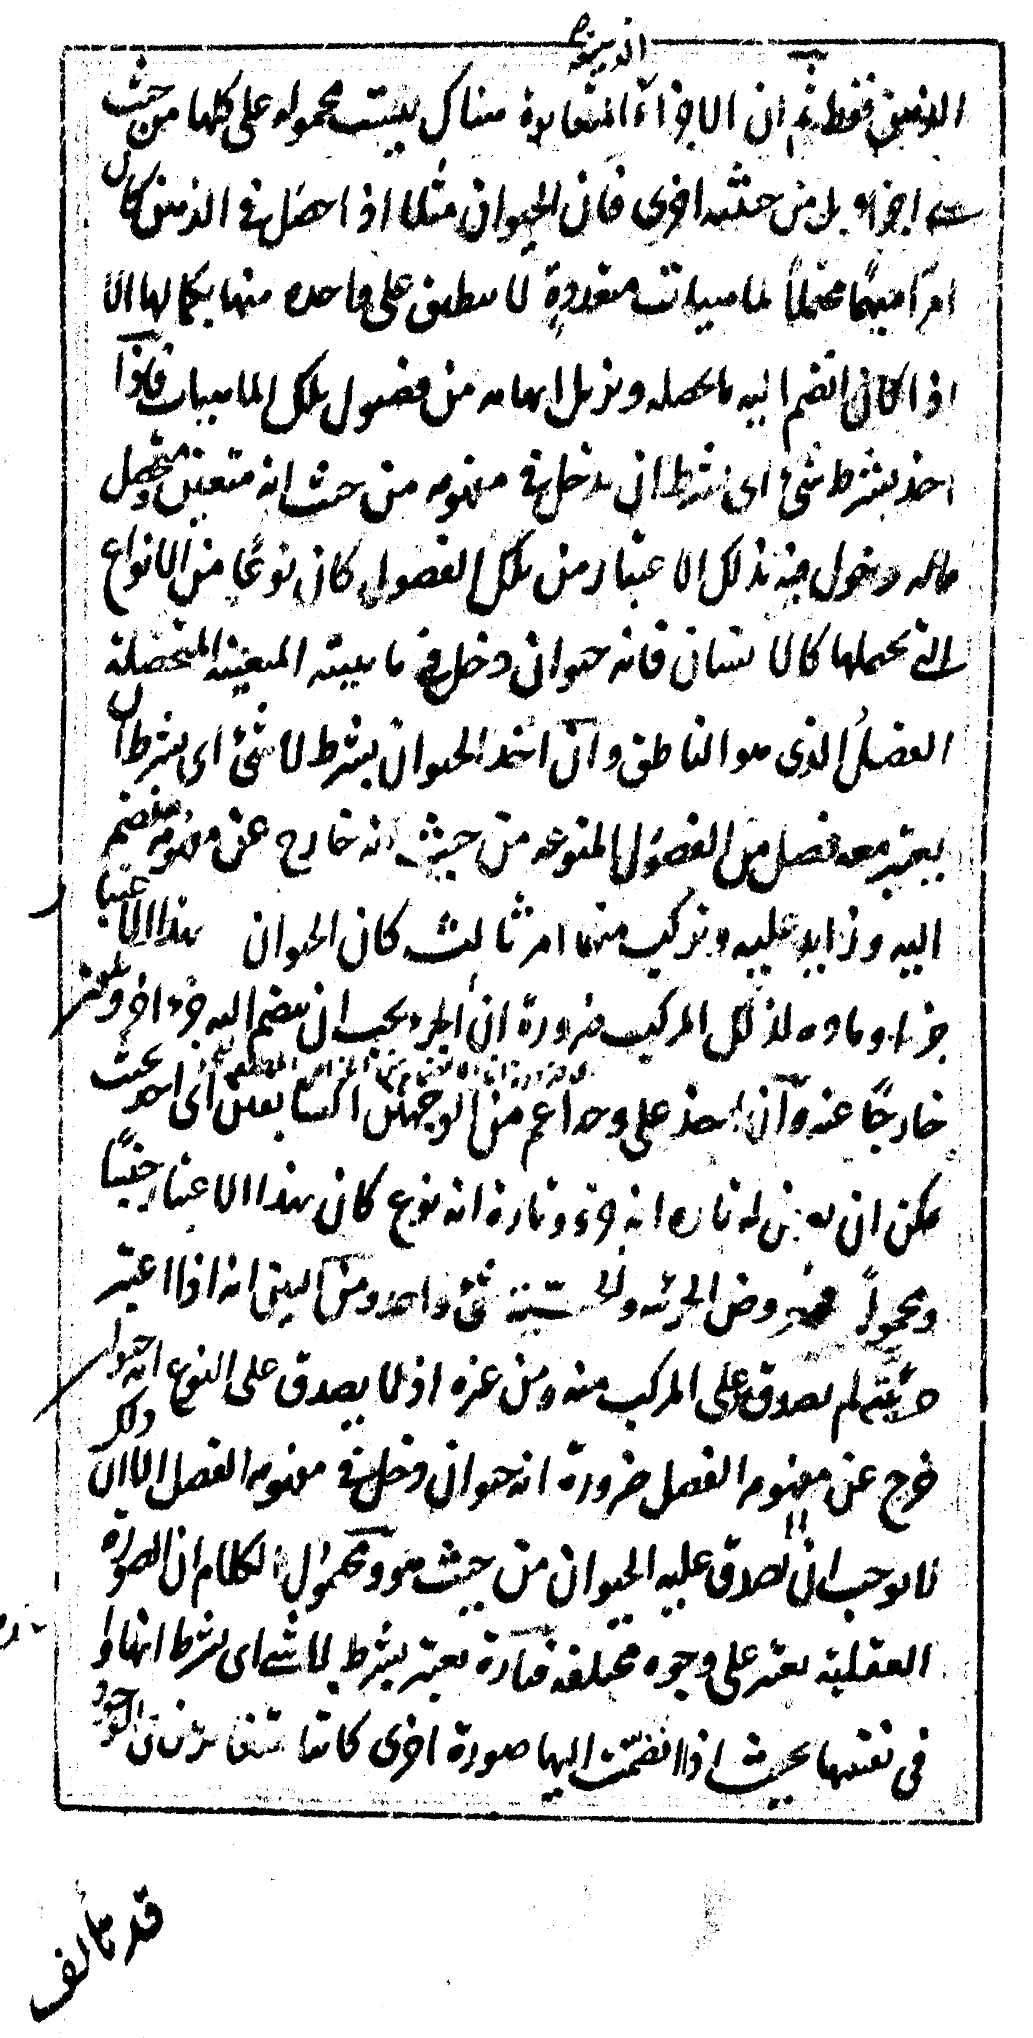 الذهنية
الذهن فقط ثم ان الاجزاء المتمايزة هناك ليست محمولة على كلها من حيث
هي اجزاؤه بل من حيثية اخرى فان الحيوان مثلا اذا حصل في الذهن كان
امرا مبهما محتملا لماهيات متعددة لا ينطبق على واحدة منها بكمالها الا
اذا كان انضم اليه ما يحصله ويزيل ابهامه من فصول تلك الماهيات فاذا
اخذ بشرط شئ اى بشرط ان يدخل في مفهومه من حيث انه متعين ومتحصل
ماله دخول فيه بذلك الاعتبار من تلك الفصول كان نوعا من الانواع
التي تحملها كالانسان فانه حيوان دخل في ماهيته المعينة المتحصلة
الفصل الذى هو الناطق وان اخذ الحيوان بشرط لا شئ اى بشرط ان
يعتبر معه فصل من الفصول المنوعة من حيث انه خارج عن مفهومه منضم
اليه وزايد عليه وتركب منهما امر ثالث كان الحيوان بهذا الاعتبار
جزءا ومادة لذلك المركب ضرورة ان الجزء يجب ان ينضم اليه جزء اخر ويكون
خارجا عنه وان اخذ على وجه اعم من الوجهين السابقين اى اخذ بحيث
يمكن ان يعرض له تارة انه جزء وتارة انه نوع كان بهذا الاعتبار جنسا
ومحمولا فمعروض الجزئية والجنسية شئ واحد ومن البين انه اذا اعتبر
جزئيته لم يصدق على المركب منه ومن غيره اذ لا يصدق على النوع انه حيوان
خرج عن مفهومه الفصل ضرورة انه حيوان دخل في مفهومه الفصل الا ان ذلك
لا يوجب ان يصدق عليه الحيوان من حيث هو ومحصول الكلام ان الصورة
العقلية تعتبر على وجوه مختلفة فتارة تعتبر بشرط لا شئ اى بشرط انها
في نفسها بحيث اذا انضمت اليها صورة اخرى كانتا متغايرتين في الوجود
قد تألف